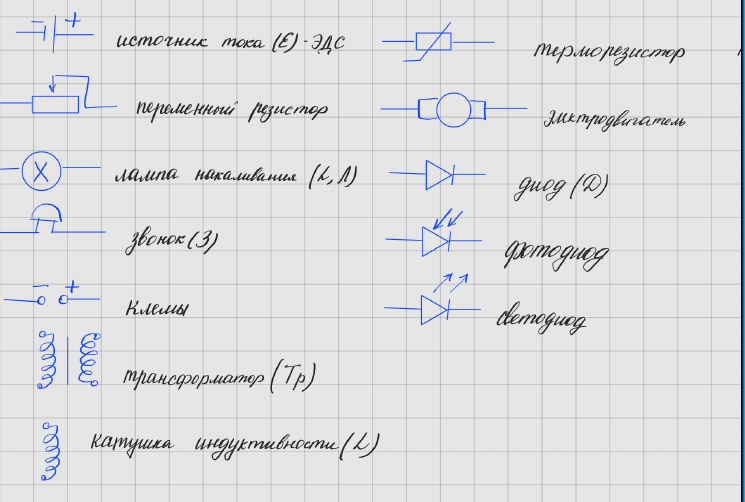 - +
источник тока (Е) - ЭДС
переменный резистор
X
лампа накаливания (L, Л)
звонок (З)
- +
Клемы
трансформатор (Тр)
катушка индуктивности (L)
терморезистор
электродвигатель
диод (D)
фотодиод
светодиод